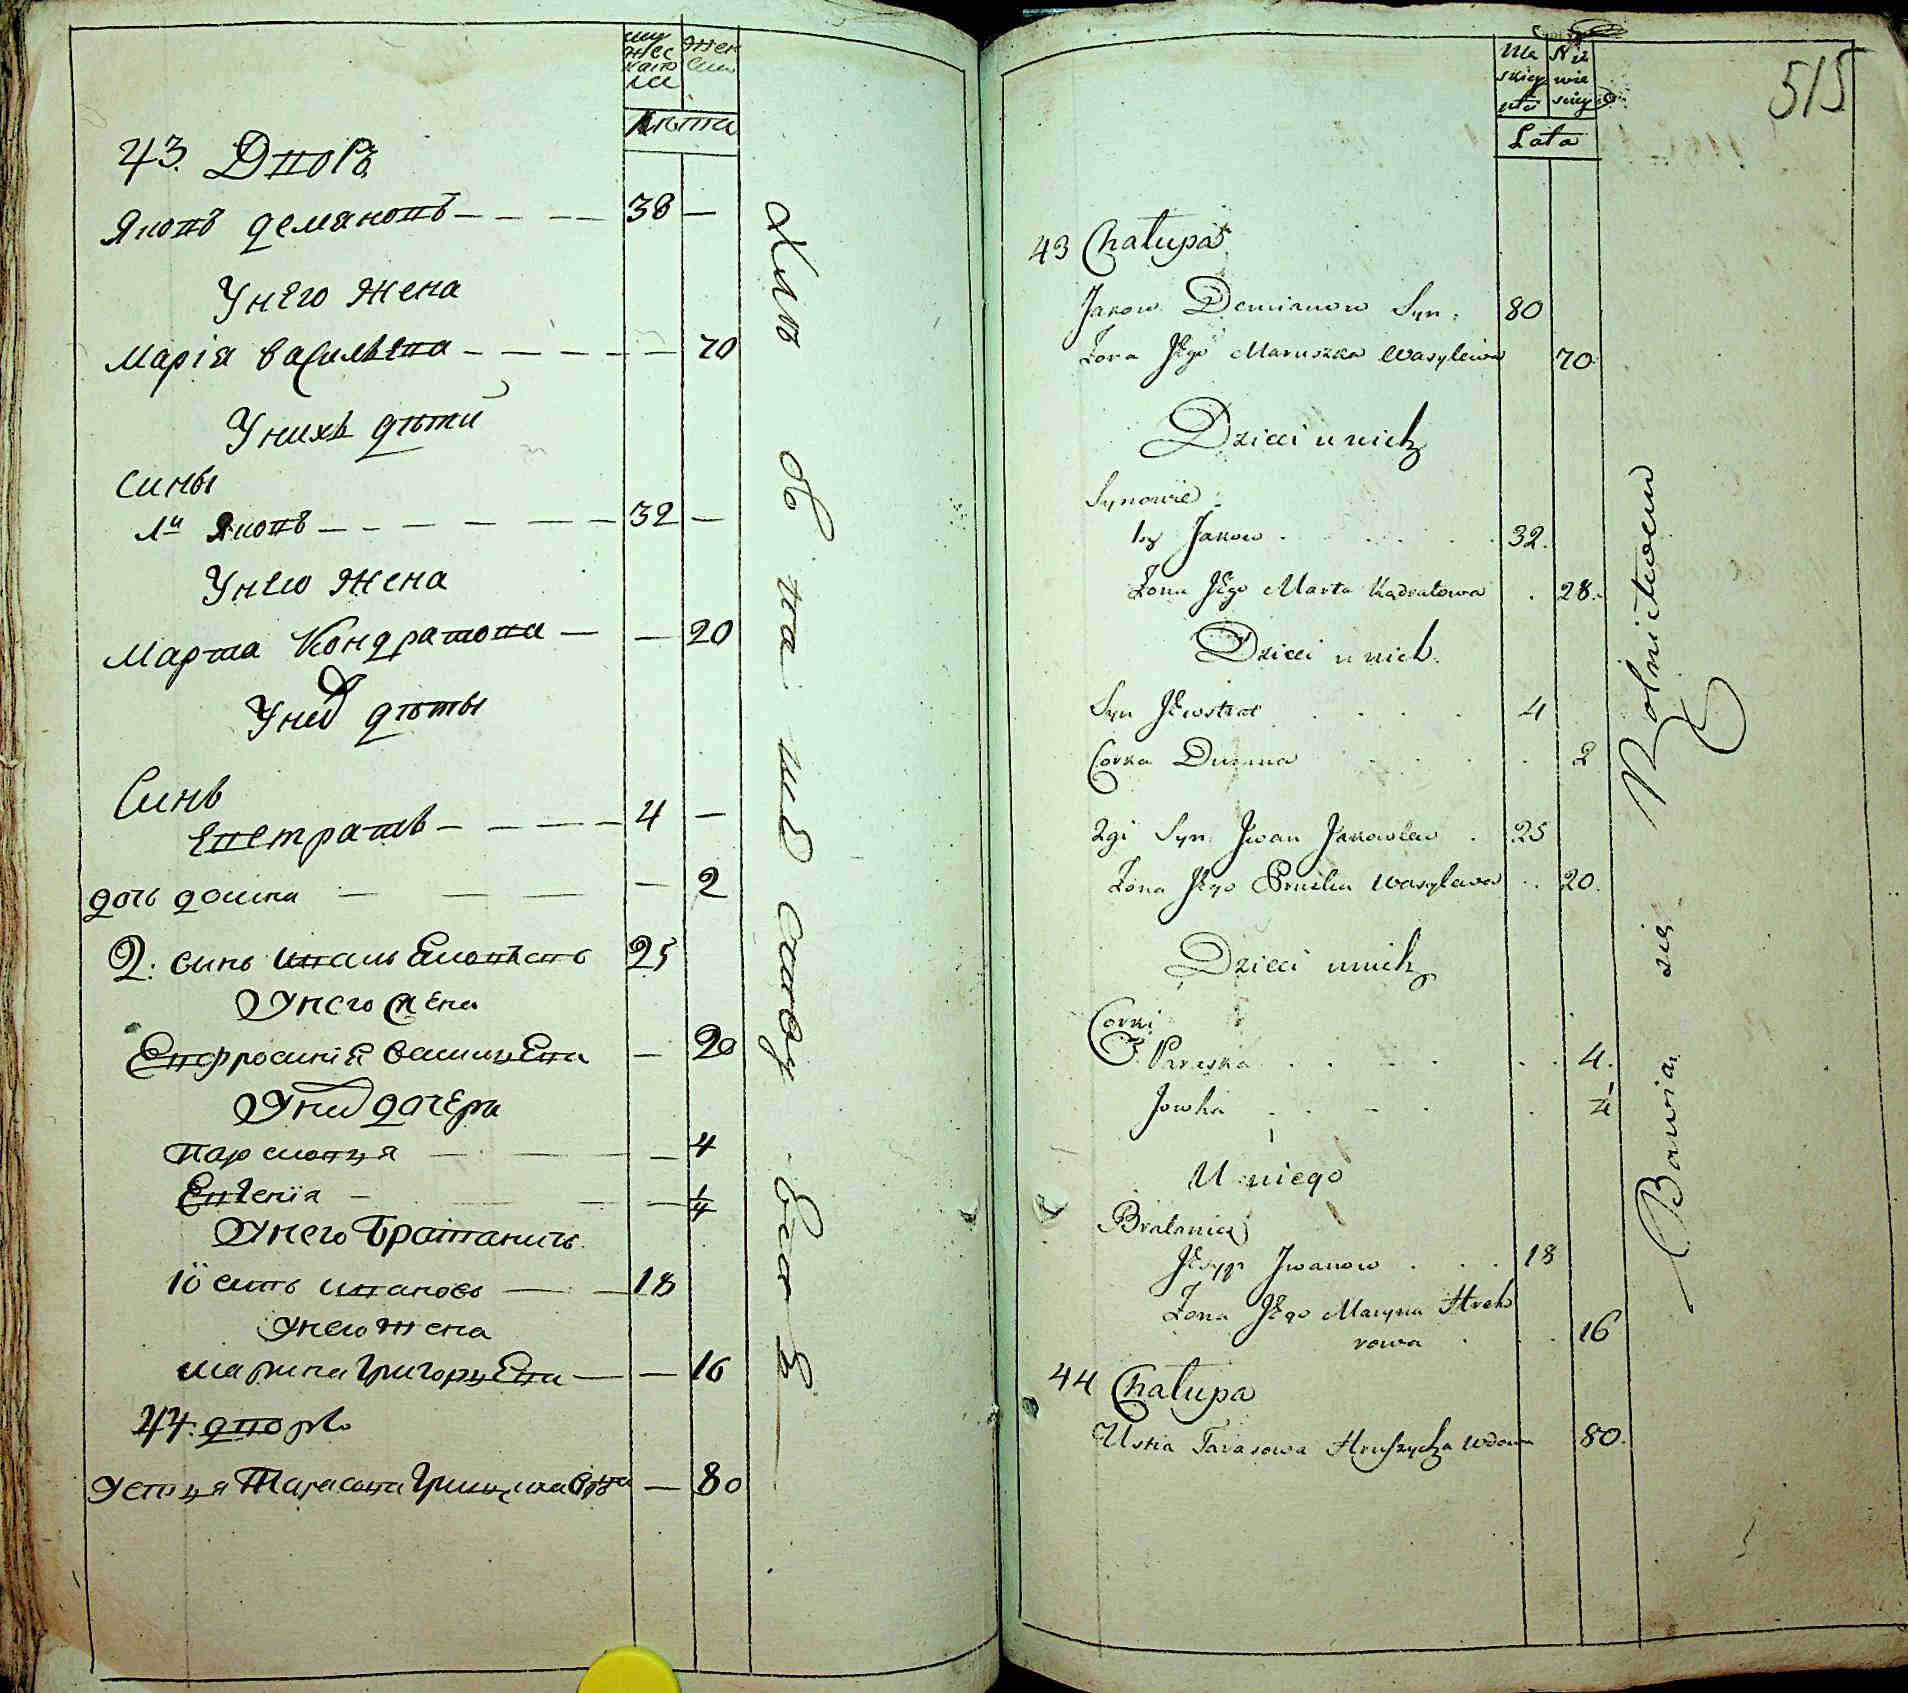 му
жес
каго
ли
жен
ски
лѣта
43. Дворъ
Яковъ демяновъ 38 —
Унего жена
Марія василѣва — 70
Унихъ дѣти
Сины
1й Яковъ 32 —
Унего жена
Марта Кондратова — 20
Уних дѣты
Синъ
Евстратъ 4 —
дочь домна — 2
2. синъ иванъ Яковлевъ 25
Унего жена
Евфросинія василиева — 20
Уних дочери
парасковия — 4
Евгения — 1/4
Унего братаничъ
Іосипъ ивановъ 18
Унего жена
марина григориева — 16
44. дворъ
Устиния Тарасова — 80
Хлѣ бо па ше
515
Mę
skiey
płci
Nie
wie
sciey
Lata
43 Chałupa
Jakow Demianow Syn. 80
Żona Jego Maruszka Wasylewa 70
Dzieci u nich
Synowie
1szy Jakow 32.
Żona Jego Marta Kądratowa 28.
Dzieci u nich.
Syn Jewstrat 4
Corka Dumna 2
2gi Syn. Jwan Jakowlew 25
Żona Jego Pruska Wasylewa 20.
Dzieci u nich
Corki
Paraska 4.
Jowha 1/4
U niego
Bratanicz
Jesyp Jwanow 18
Żona Jego Maryna Hreh
rowa 16
44 Chałupa
Ustia Tarasowa Hruszycha wdowa 80.
Bawią się Rolnictwem